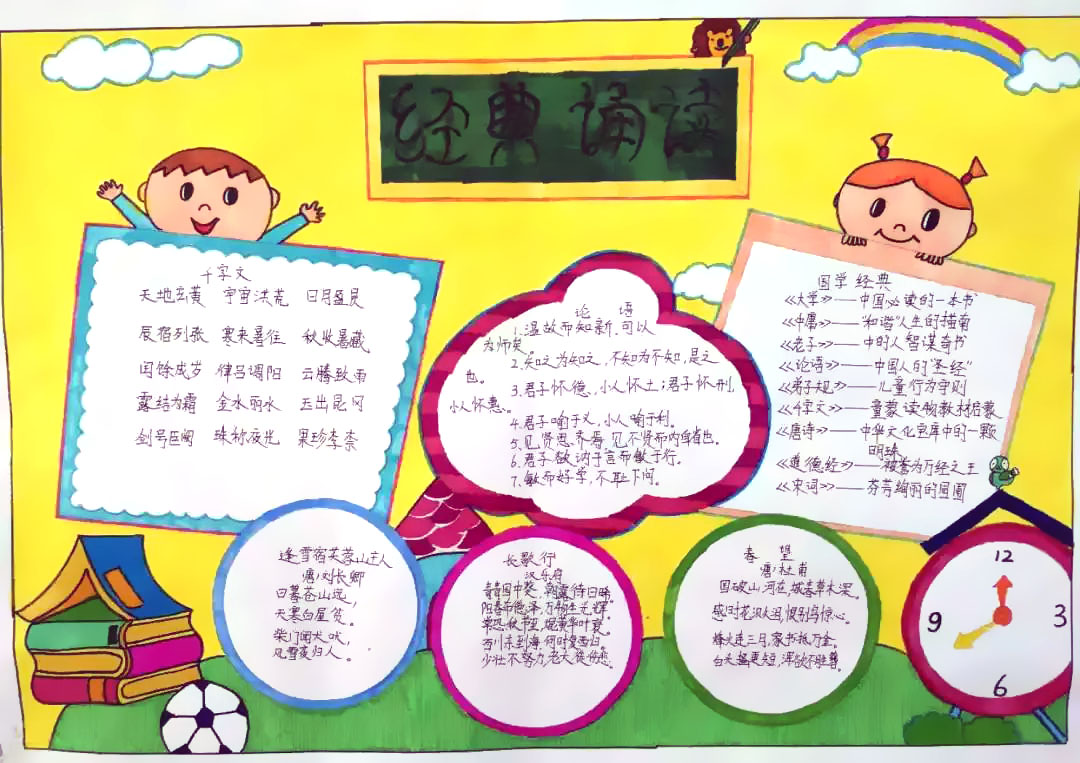 经典诵读
千字文
天地玄黄 宇宙洪荒 日月盈昃
辰宿列张 寒来暑往 秋收冬藏
闰馀成岁 律吕调阳 云腾致雨
露结为霜 金水丽水 玉出昆冈
剑号巨阙 珠称夜光 果珍李柰
论语
1.温故而知新,可以
为师矣
2.知之为知之,不知为不知,是知
也。
3.君子怀德,小人怀土;君子怀刑,
小人怀惠。
4.君子喻于义,小人喻于利。
5.见贤思齐焉,见不贤而内自省也。
6.君子欲讷于言而敏于行。
7.敏而好学,不耻下问。
国学经典
《大学》——中国必读的一本书
《中庸》——"和谐"人生的指南
《老子》——中的人智谋奇书
《论语》——中国人的"圣经"
《弟子规》——儿童行为守则
《千字文》——童蒙读物教材启蒙
《唐诗》——中华文化宝库中的一颗
明珠
《道德经》——被誉为万经之王
《宋词》——芬芳绚丽的园圃
逢雪宿芙蓉山主人
唐/刘长卿
日暮苍山远,
天寒白屋贫。
柴门闻犬吠,
风雪夜归人。
长歌行
汉乐府
青青园中葵,朝露待日晞
阳春布德泽,万物生光辉
常恐秋节至,焜黄华叶衰
百川东到海,何时复西归
少壮不努力,老大徒伤悲
春望
唐/杜甫
国破山河在,城春草木深。
感时花溅泪,恨别鸟惊心。
烽火连三月,家书抵万金。
白头搔更短,浑欲不胜簪。
12
9 3
6